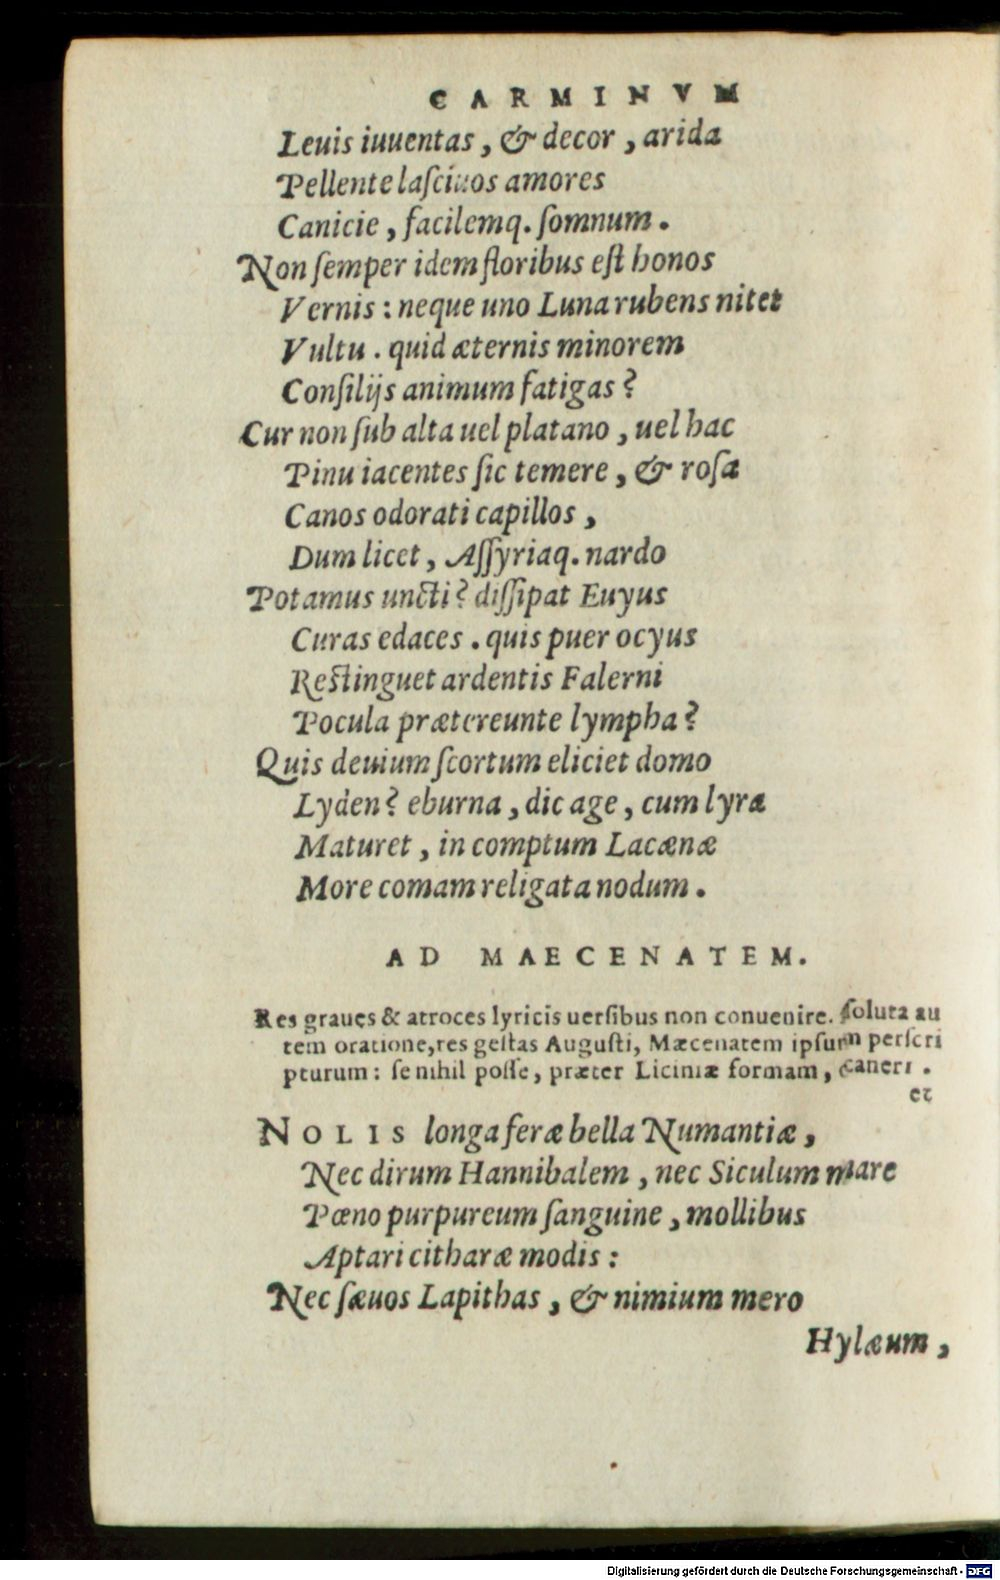 CARMINVM
Leuis iuuentas, & decor, arida
Pellente lasciuos amores
Canicie, facilemq. somnum.
Non semper idem floribus est honos
Vernis: neque uno Luna rubens nitet
Vultu. quid æternis minorem
Consilijs animum fatigas?
Cur non sub alta uel platano, uel hac
Pinu iacentes sic temere, & rosa
Canos odorati capillos,
Dum licet, Assyriaq. nardo
Potamus uncti? dissipat Euyus
Curas edaces. quis puer ocyus
Restinguet ardentis Falerni
Pocula prætereunte lympha?
Quis deuium scortum eliciet domo
Lyden? eburna, dic age, cum lyra
Maturet, in comptum Lacænæ
More comam religata nodum.
AD MAECENATEM.
Res graues & atroces lyricis uersibus non conuenire. soluta au
tem oratione, res gestas Augusti, Mæcenatem ipsum perscri
pturum: se nihil posse, præter Liciniæ formam, canere.
et
NOLIS longa feræ bella Numantiæ,
Nec dirum Hannibalem, nec Siculum mare
Pœno purpureum sanguine, mollibus
Aptari citharæ modis:
Nec sæuos Lapithas, & nimium mero
Hylæum,
Digitalisierung gefördert durch die Deutsche Forschungsgemeinschaft - DFG